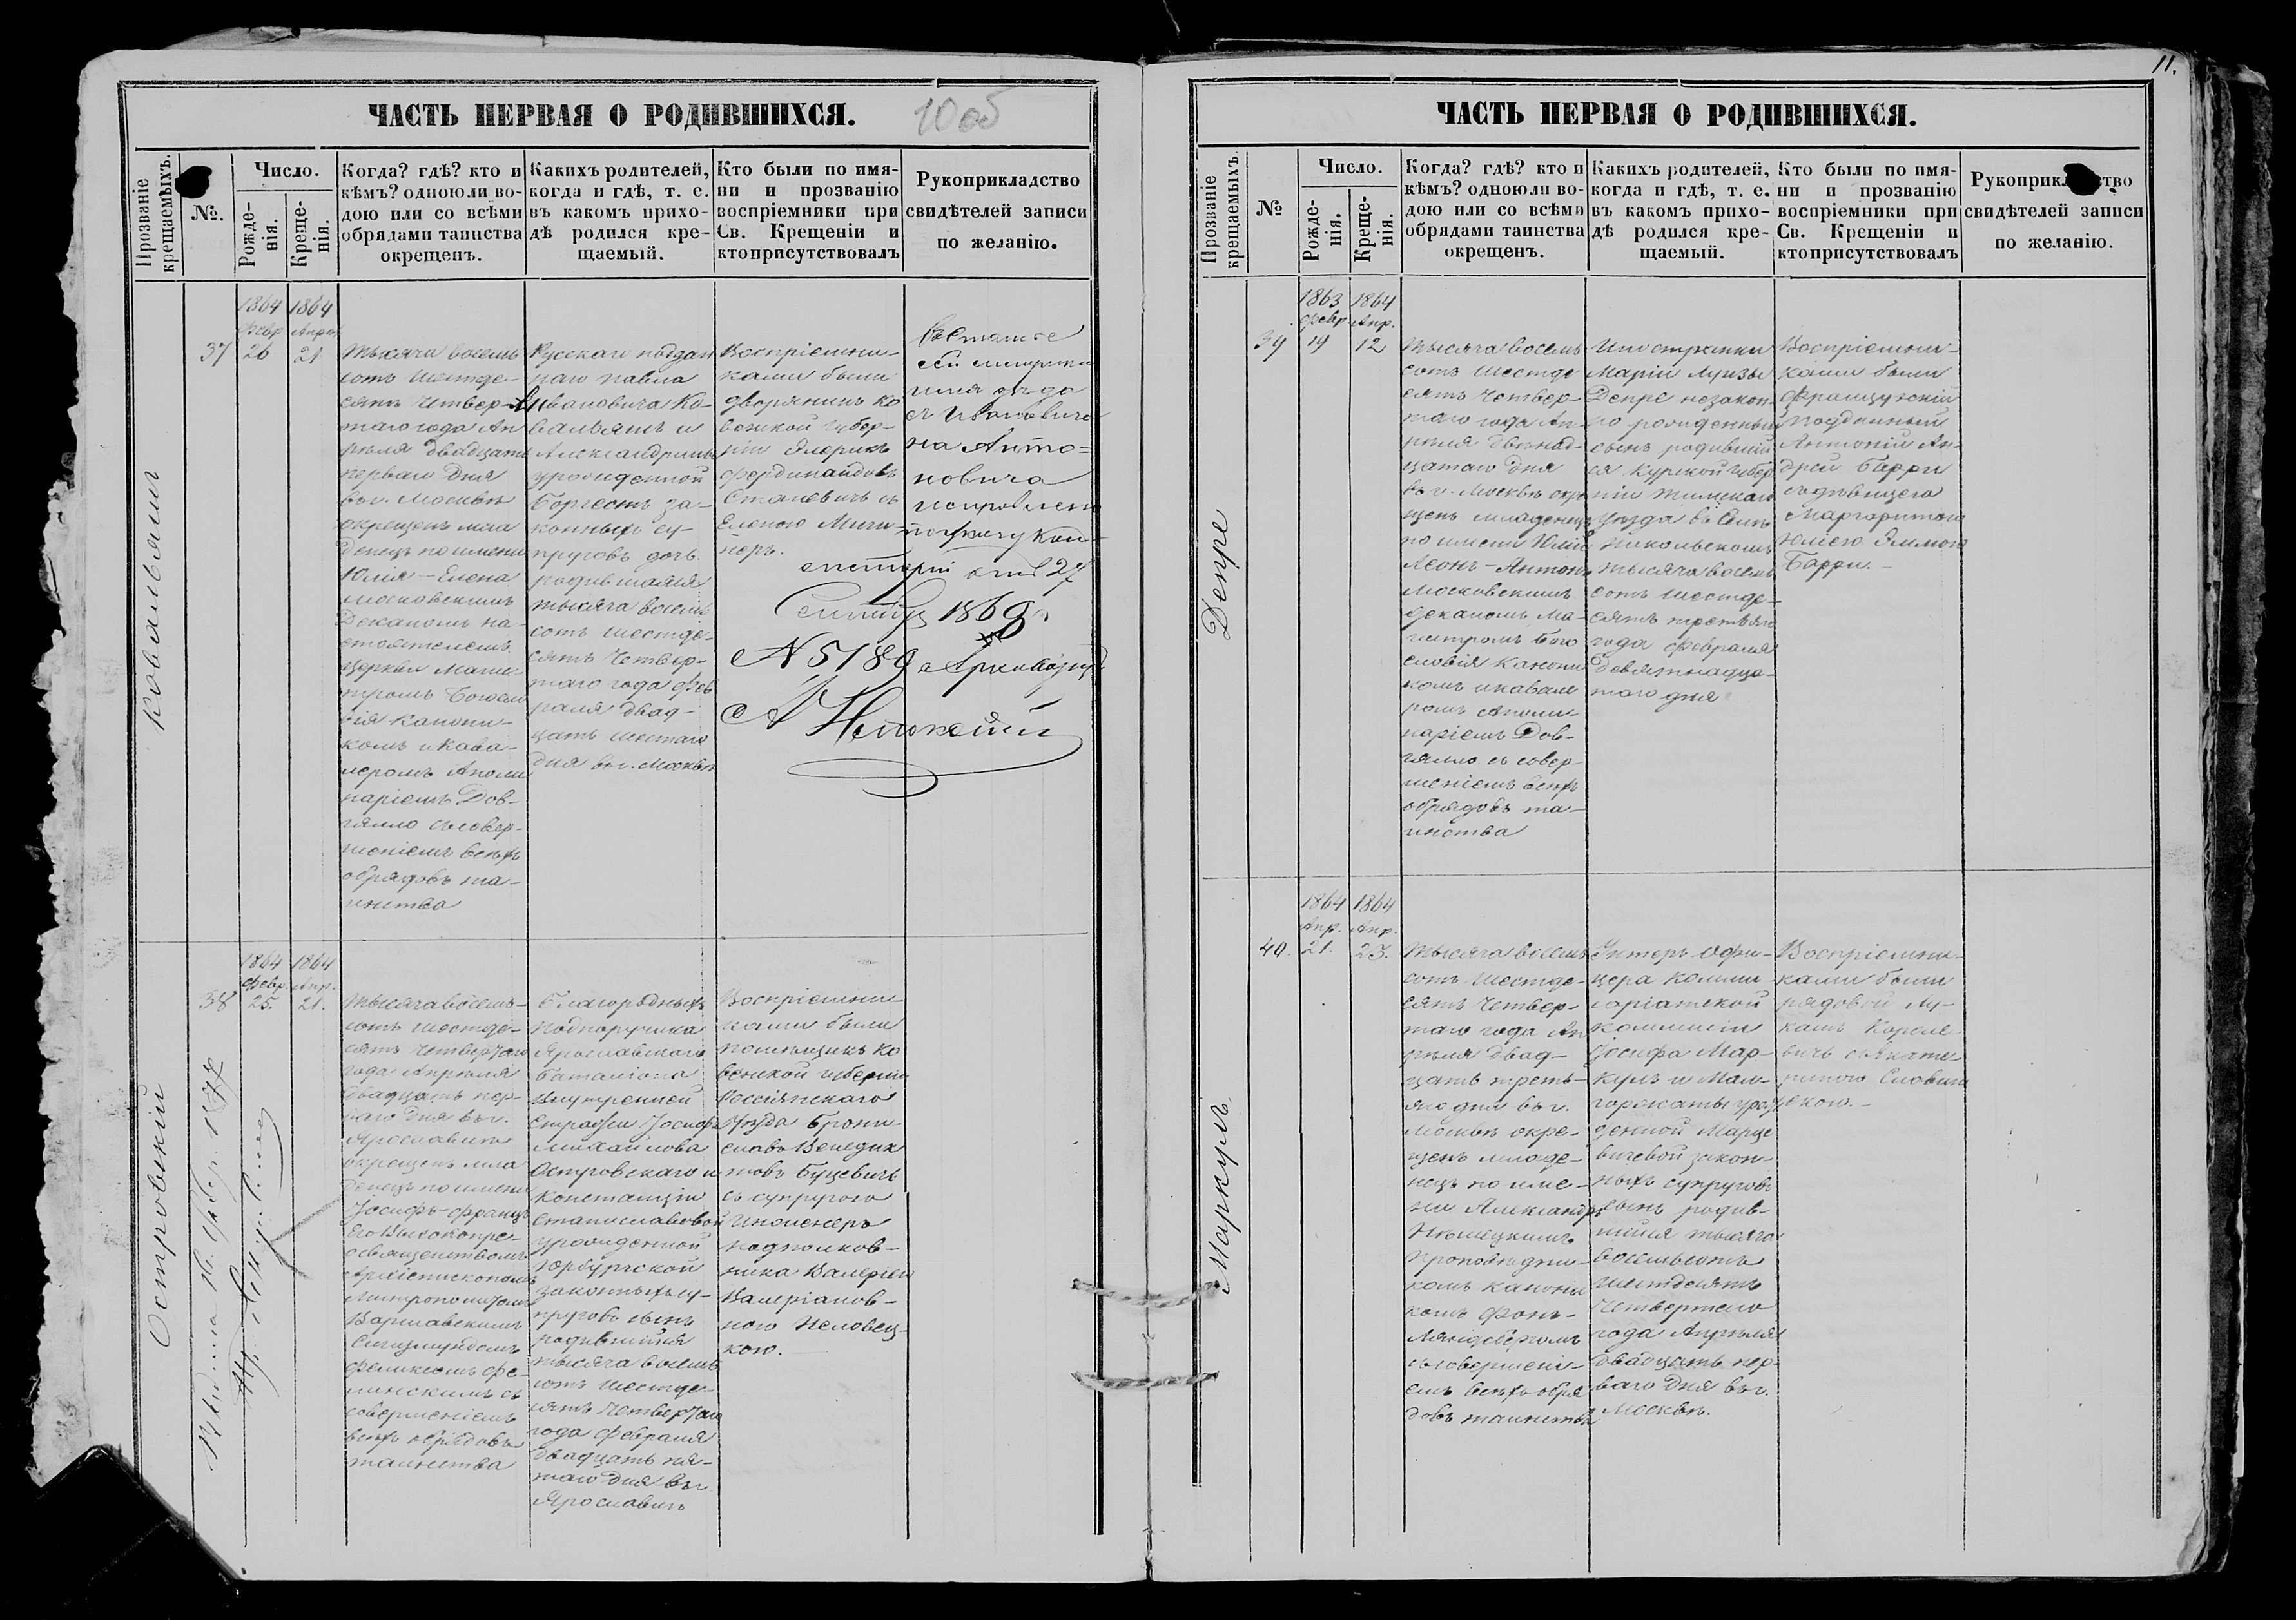 ЧАСТЬ ПЕРВАЯ О РОДИВШИХСЯ.
10 об
Прозваніе крещаемыхъ.
№.
Число.
Рожде-
нія.
Креще-
нія.
Когда? гдѣ? кто и
кѣмъ? одною ли во-
дою или со всѣми
обрядами таинства
окрещенъ.
Какихъ родителей,
когда и гдѣ, т. е.
въ какомъ прихо-
дѣ родился кре-
щаемый.
Кто были по имя-
ни и прозванію
воспріемники при
Св. Крещеніи и
кто присутствовалъ
Рукоприкладство
свидѣтелей записи
по желанію.
Ковальятъ
37
1864
Февр
26
1864
Апрѣ
21
Тысяча восемь
сотъ шестьде-
сятъ четвер-
таго года Ап
рѣля двадцать
перваго дня
въ г. Москвѣ
окрещенъ мла
денецъ по имени
Юлія-Елена
Московскимъ
Деканомъ на-
стоятелемъ
церкви Маги-
стромъ Богосл
вія канони-
комъ и кава-
леромъ Аполи
наріемъ Дов-
гялло съ совер-
шеніемъ всѣхъ
обрядовъ та-
инства
Русскаго поддан
наго Павла
Ивановича Ко-
вальятъ и
Александрины
урожденной
Боргестъ за-
конныхъ су-
пруговъ дочь
родившаяся
тысяча восемь
сотъ шестьде-
сятъ четвер-
таго года фев
раля двад-
цать шестаго
дня въ г. Москвѣ
Воспріемни-
ками были
дворянинъ Ко
венской губер-
ніи Элерикъ
Фердинандовъ
Станевичъ съ
Еленою
имя дѣда
съ Ивановича
на Анто-
новича
исправлено
по указу Кон-
систоріи отъ 27
Сентябр 1869
№ 5189
Островскій
38
1864
Февр.
25.
1864
Апр.
21.
Тысяча восемь-
сотъ шестьде-
сятъ четвертаго
года Апрѣля
двадцать пер-
ваго дня въ г.
Ярославлѣ
окрещенъ мла
денецъ по имени
Іосифъ-Францъ
Его Высокопре-
освященствомъ
Архіепископомъ
Митрополитомъ
Варшавскимъ
Сигизмундомъ
Феликсомъ Фе-
линскимъ съ
совершеніемъ
всѣхъ обрядовъ
таинства
Благородныхъ
Подпоручика
Ярославскаго
баталіона
внутренней
стражи Іосифа
Михайлова
Островскаго и
Констанціи
Станиславовой
урожденной
Юрбургской
законныхъ су-
пруговъ сынъ
родившійся
тысяча восемь
сотъ шестьде-
сятъ четвертаго
года февраля
двадцать пя-
таго дня въ г
Ярославлѣ
Воспріемни-
ками были
помѣщикъ Ко
венской губерніи
Россіенскаго
Уѣзда Брони-
славъ Венедик
товъ Буцевичъ
съ супругою
Инженеръ
подполков-
ника Валеріею
Валеріанов-
ною Неловец-
кою.
ЧАСТЬ ПЕРВАЯ О РОДИВШИХСЯ.
11.
Прозваніе крещаемыхъ.
№
Число.
Рожде-
нія.
Креще-
нія.
Когда? гдѣ? кто и
кѣмъ? одною ли во-
дою или со всѣми
обрядами таинства
окрещенъ.
Какихъ родителей,
когда и гдѣ, т. е.
въ какомъ прихо-
дѣ родился кре-
щаемый.
Кто были по имя-
ни и прозванію
воспріемники при
Св. Крещеніи и
кто присутствовалъ
Рукоприкладство
свидѣтелей записи
по желанію.
Депре
39
1863
Февр
19
1864
Апр.
12
Тысяча восемь
сотъ шестьде
сятъ четвер-
таго года Ап-
рѣля двѣнад-
цатаго дня
въ г. Москвѣ окре
щенъ младенецъ
по имени Юлій
Леонъ-Антонъ
Московскимъ
деканомъ Ма-
гистромъ Бого
словія Канони
комъ и кавале
ромъ Аполи-
наріемъ Дов-
гялло съ совер-
шеніемъ всѣхъ
обрядовъ та-
инства
Иностранки
Маріи Луизы
Депре незакон-
но рожденный
сынъ родившій
ся Курской губер
ніи Тимскаго
Уѣзда въ Селѣ
Никольскомъ
тысяча восемь
сотъ шестьде-
сятъ третьяго
года февраля
девятнадца-
таго дня
Воспріемни-
ками были
Французскій
подданный
Антоній Ан-
дрей Барри
съ дѣвицею
Маргаритою
Юліею Эммою
Барри.-
Маркуль
40.
1864
Апр.
21.
1864
Апр.
23.
Тысяча восемь
сотъ шестьде-
сятъ четвер-
таго года Ап
рѣля двад-
цать треть-
яго дня въ г.
Москвѣ окре-
щенъ младе-
нецъ по име-
ни Александръ
Нѣмецкимъ
проповѣдни-
комъ канони
комъ Фонъ-
Ляндсбергомъ
съ совершені-
емъ всѣхъ обря
довъ таинства
Унтеръ Офи-
цера Комми
саріатской
коммисіи
Іосифа Мар-
куль и Мал-
горжаты урож
денной Марце
вичевой закон-
ныхъ супруговъ
сынъ родив-
шійся тысяча
восемьсотъ
шестьдесятъ
четвертаго
года Апрѣля
двадцать пер-
ваго дня въ г.
Москвѣ.
Воспріемни-
ками были
рядовой Лу-
кашъ Короле-
вичъ съ Екате
риною Словин
скою.-